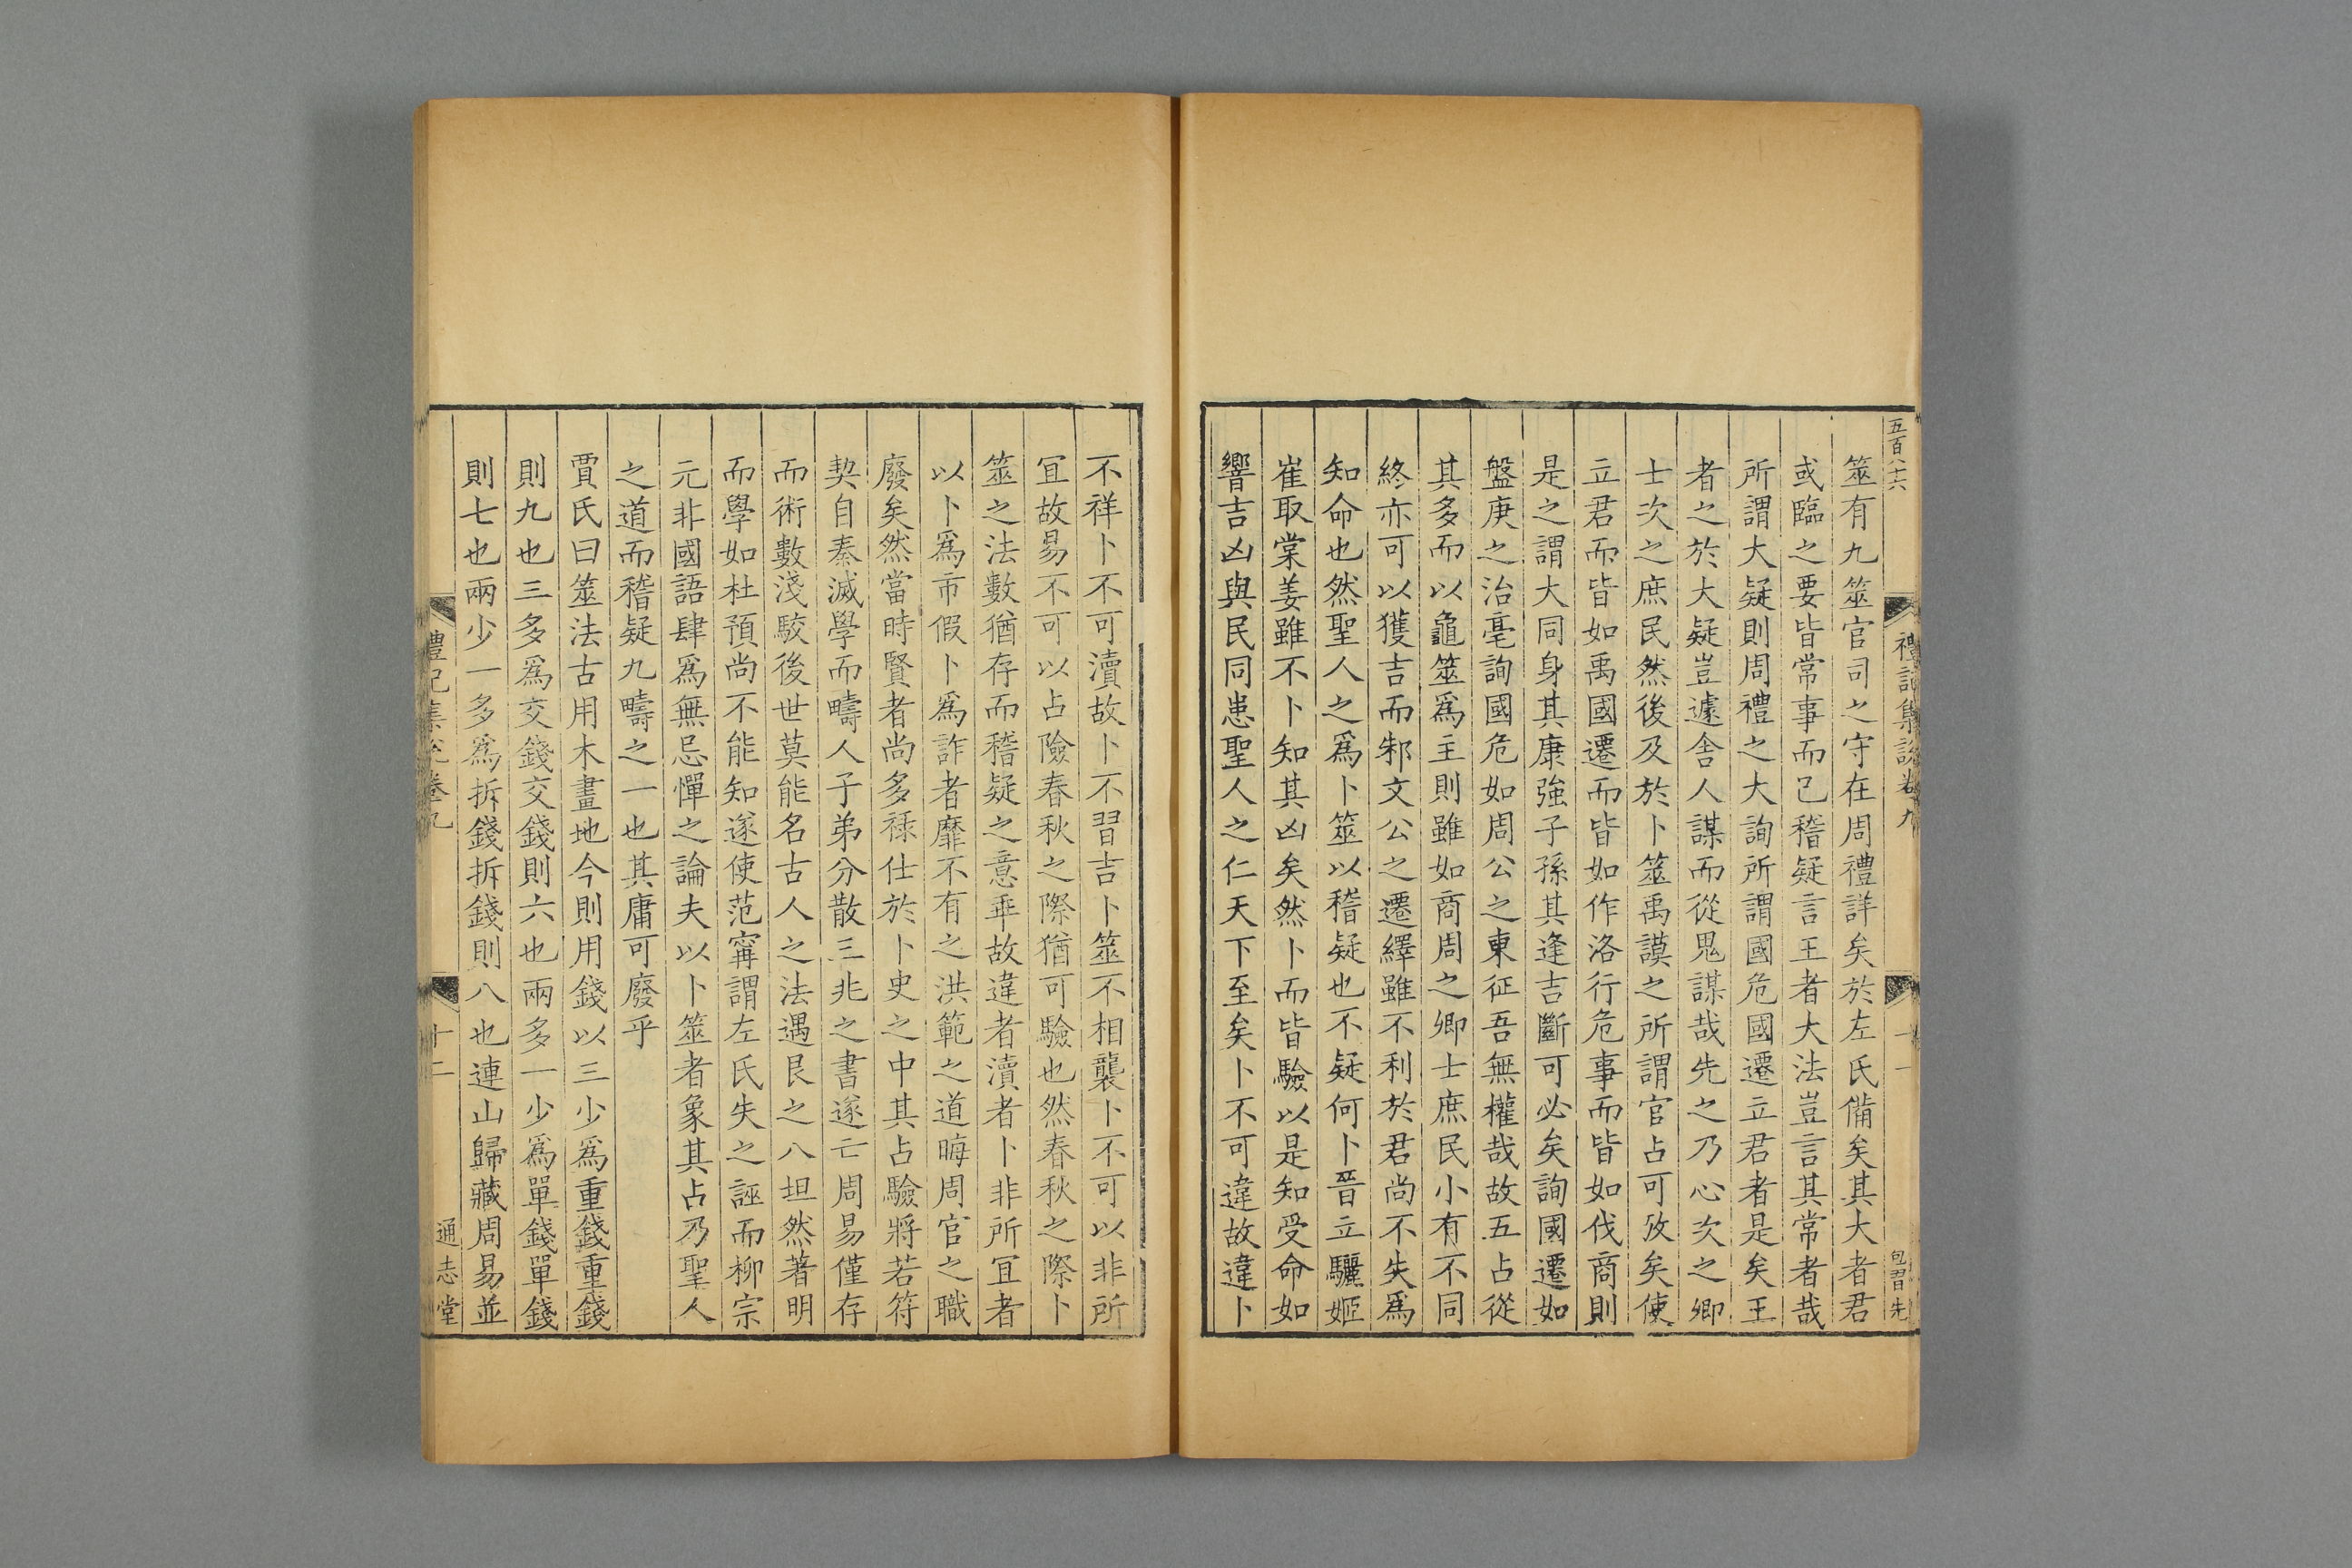 五百八十六
禮記集說卷九
十一
筮有九筮官司之守在周禮詳矣於左氏備矣其大者君
或臨之要皆常事而已稽疑言王者大法豈言其常者哉
所謂大疑則周禮之大詢所謂國危國遷立君者是矣王
者之於大疑豈遽舍人謀而從鬼謀哉先之乃心次之卿
士次之庶民然後及於卜筮禹謨之所謂官占可攷矣使
立君而皆如禹國遷而皆如作洛行危事而皆如伐商則
是之謂大同身其康強子孫其逢吉斷可必矣詢國遷如
盤庚之治亳詢國危如周公之東征吾無權哉故五占從
其多而以龜筮爲主則雖如商周之卿士庶民小有不同
終亦可以獲吉而邾文公之遷繹雖不利於君尚不失爲
知命也然聖人之爲卜筮以稽疑也不疑何卜晉立驪姬
崔取棠姜雖不卜知其凶矣然卜而皆驗以是知受命如
響吉凶與民同患聖人之仁天下至矣卜不可違故違卜
不祥卜不可瀆故卜不習吉卜筮不相襲卜不可以非所
冝故易不可以占險春秋之際猶可驗也然春秋之際卜
筮之法數猶存而稽疑之意乖故違者瀆者卜非所冝者
以卜爲市假卜爲詐者靡不有之洪範之道晦周官之職
廢矣然當時賢者尚多祿仕於卜史之中其占驗將若符
契自秦滅學而疇人子弟分散三兆之書遂亡周易僅存
而術數淺駮後世莫能名古人之法遇艮之八坦然著明
而學如杜預尚不能知遂使范甯謂左氏失之誣而柳宗
元非國語肆爲無忌憚之論夫以卜筮者象其占乃聖人
之道而稽疑九疇之一也其庸可廢乎
賈氏曰筮法古用木畫地今則用錢以三少爲重錢重錢
則九也三多爲交錢交錢則六也兩多一少爲單錢單錢
則七也兩少一多爲拆錢拆錢則八也連山歸藏周易並
禮記集說卷九
十二
通志堂